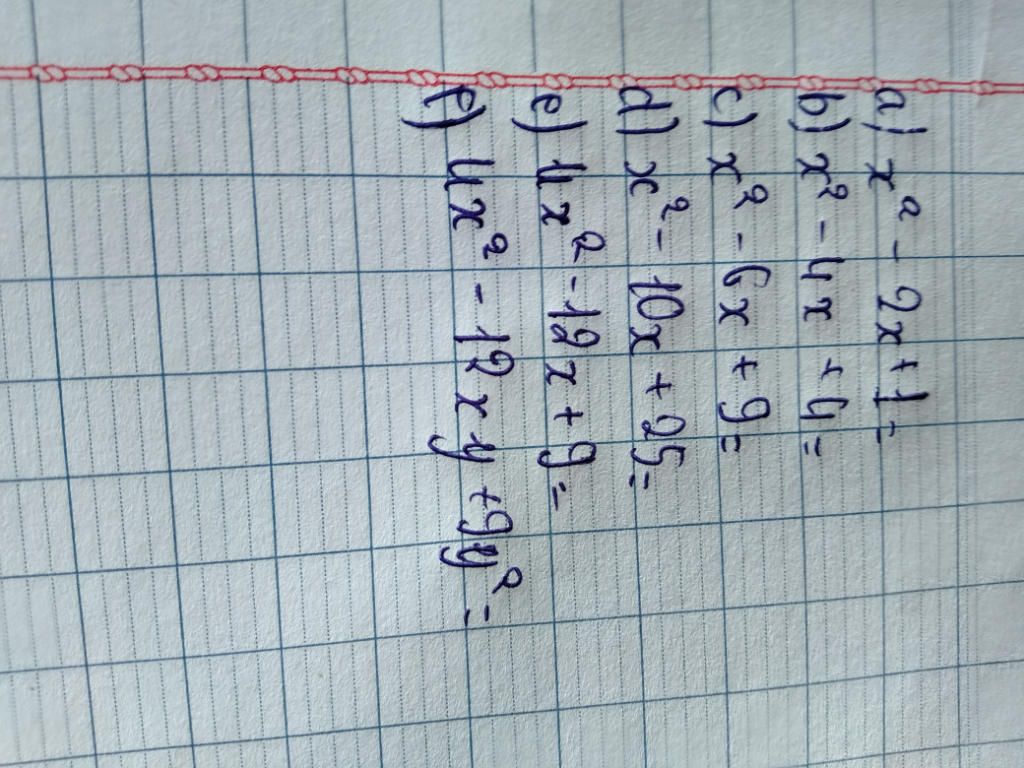 a) x² - 2x + 1 =
b) x² - 4x + 4 =
c) x² - 6x + 9 =
d) x² - 10x + 25 =
e) 4x² - 12x + 9 =
f) 4x² - 12xy + 9y² =